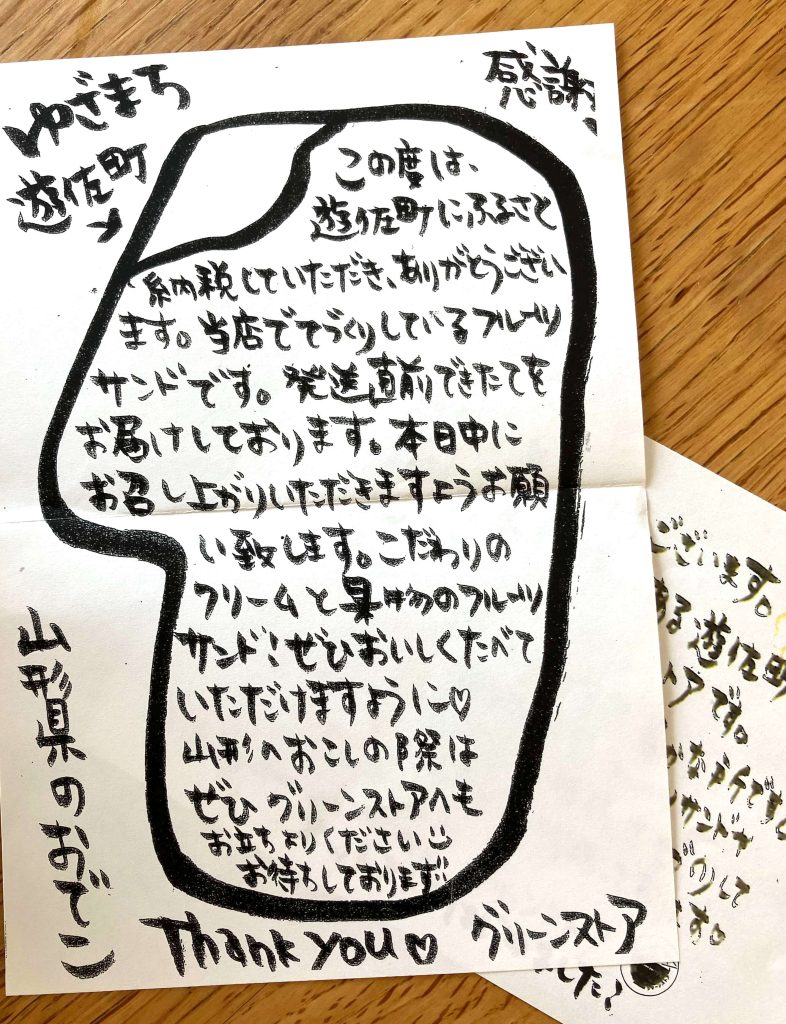 ゆざまち
遊佐町
感謝
この度は、
遊佐町にふるさと
納税していただき、ありがとうござい
ます。当店でてづくりしているフルーツ
サンドです。発送直前できたてを
お届けしております。本日中に
お召し上がりいただきますようお願
い致します。こだわりの
クリームと果物のフルーツ
サンド!ぜひおいしくたべて
いただけますように♡
山形へおこしの際は
ぜひグリーンストアへも
お立ちよりください
お待ちしております!!
山形県のおでこ
Thank you♡
グリーンストア
ございます。
ある遊佐町
トアです。
な所です
サンドや
して
ます。
した!